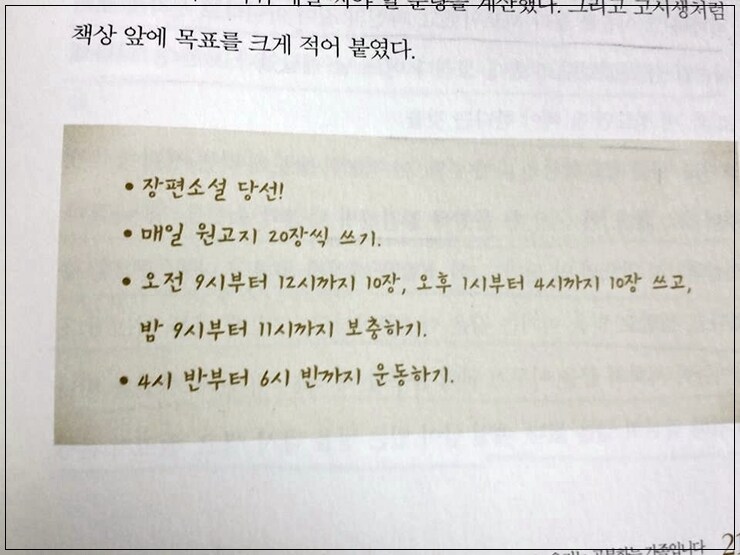 계산했다. 그리고 고시생처럼
책상 앞에 목표를 크게 적어 붙였다.
• 장편소설 당선!
• 매일 원고지 20장씩 쓰기.
• 오전 9시부터 12시까지 10장, 오후 1시부터 4시까지 10장 쓰고,
밤 9시부터 11시까지 보충하기.
• 4시 반부터 6시 반까지 운동하기.
공부하는 가족입니다